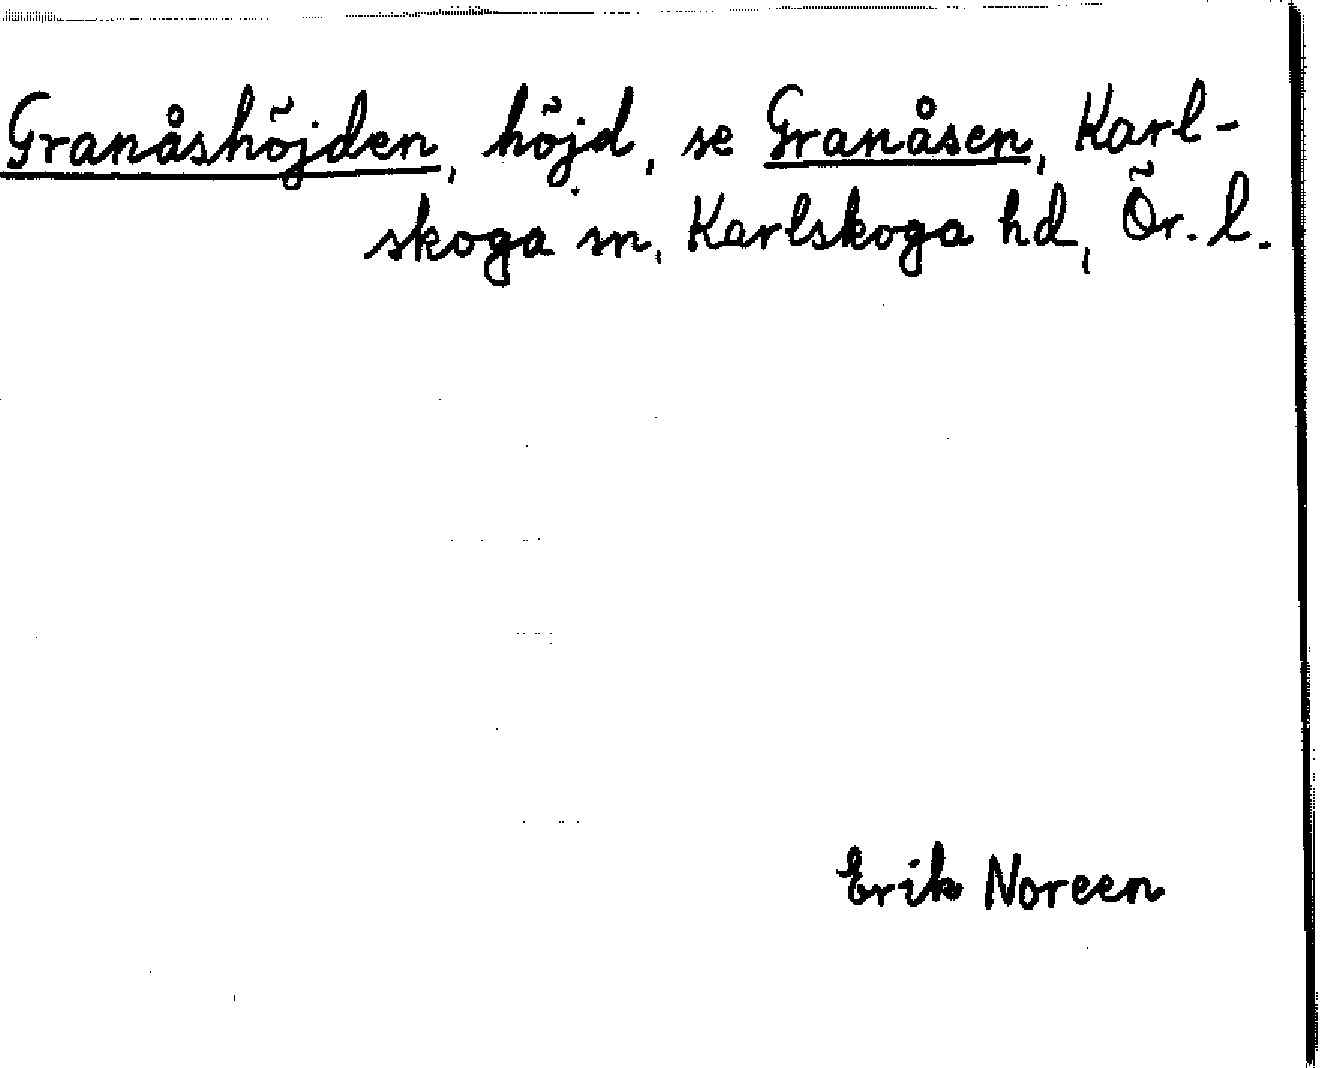 Granåshöjden, höjd, se Granåsen, Karl-
skoga sn, Karlskoga hd, Ör. l.
Erik Noreen